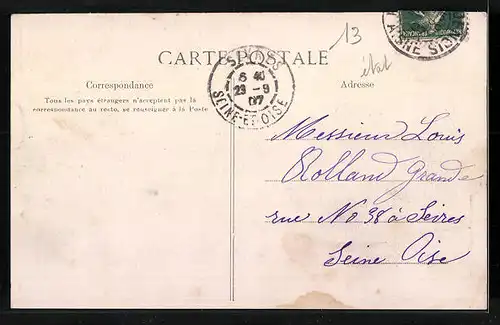 13
CARTE POSTALE
état
Correspondance
Adresse
Tous les pays étrangers n'acceptent pas la
correspondance au recto, se renseigner à la Poste
SÈVRES
6 40
23 - 9
07
SEINE-ET-OISE
Messieur Louis
Rolland Grande
rue No 38 à Sèvres
Seine Oise